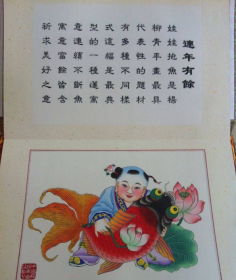 連年有餘
娃娃抱魚是楊
柳青年畫最具
代表性的題材
有多種不同樣
式這福是最典
型的一種蓮寓
意連續不斷魚
寓意富餘皆含
祈求美好之意